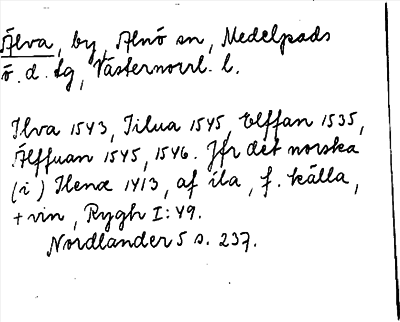 Älva, by, Alnö sn, Medelpads
ö. d. tg, Västernorrl. l.
Ilva 1543, Iilua 1545, Elffan 1535,
Älffuan 1545, 1546. Jfr det norska
(i) Ilenæ 1413, af íla, f. källa,
+ vin, Rygh I: 49.
Nordlander 5 s. 237.